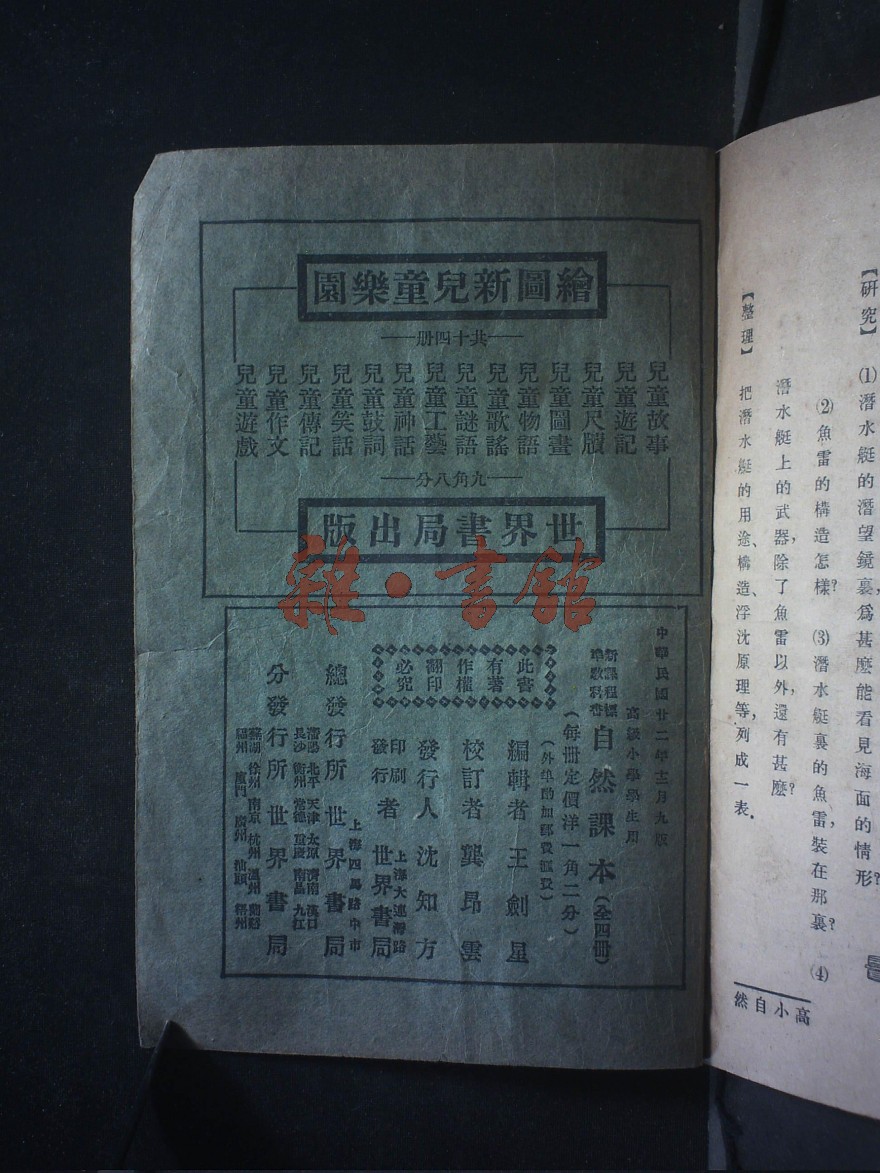 【研究】 ⑴潛水艇的潛望鏡裏，爲甚麽能看見海面的情形？
⑵魚雷的構造怎樣？ ⑶潛水艇裏的魚雷，裝在那裏？ ⑷
潛水艇上的武器，除了魚雷以外，還有甚麽？
【整理】 把潛水艇的用途、構造、浮沈原理等，列成一表．
高小自然
繪圖新兒童樂園
共十四册
兒童故事
兒童遊記
兒童尺牘
兒童圖畫
兒童物語
兒童歌謠
兒童謎語
兒童工藝
兒童神話
兒童鼓詞
兒童笑話
兒童傳記
兒童作文
兒童遊戲
九角八分
世界書局出版
中華民國廿二年十二月九版
高級小學學生用
新課程標準教科書 自然課本（全四冊）
（每冊定價洋一角二分）
（外埠酌加郵費滙費）
此書
有著
作權
翻印
必究
編輯者 王劍星
校訂者 龔昂雲
發行人 沈知方
印刷發行者 上海大連灣路 世界書局
上海四馬路中市
總發行所 世界書局
瀋陽 北平 天津 太原 濟南 漢口
長沙 衡州 常德 重慶 南昌 九江
分發行所 世界書局
蕪湖 徐州 南京 杭州 溫州 蘭谿
福州 廈門 廣州 汕頭 梧州
雜·書館